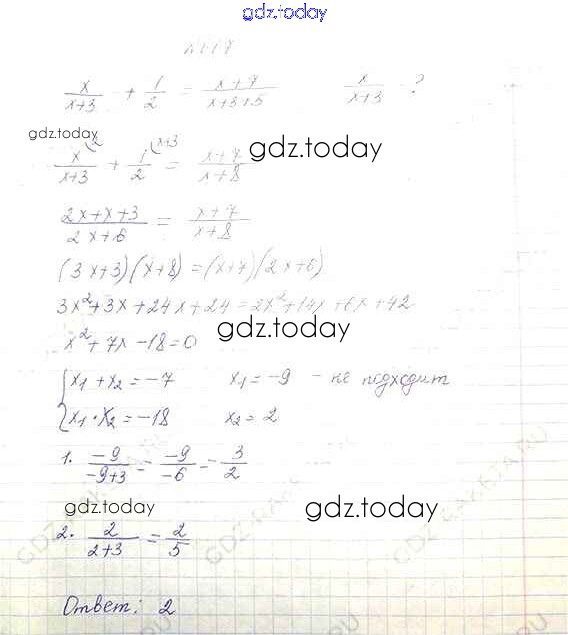 gdz.today
x/(x+3) + 1/2 = (x+7)/(x+3+5) x/(x+3) - ?
gdz.today
x/(x+3) (2 + 1/2 (x+3 = (x+7)/(x+8)
gdz.today
(2x+x+3)/(2x+6) = (x+7)/(x+8)
(3x+3)(x+8)=(x+7)(2x+6)
3x²+3x+24x+24=2x²+14x+6x+42
x²+7x-18=0
gdz.today
{x₁+x₂=-7 x₁=-9 - не подходит
{x₁·x₂=-18 x₂=2
1. -9/(-9+3) = -9/-6 - 3/2
gdz.today
gdz.today
2. 2/(2+3) = 2/5
Ответ: 2